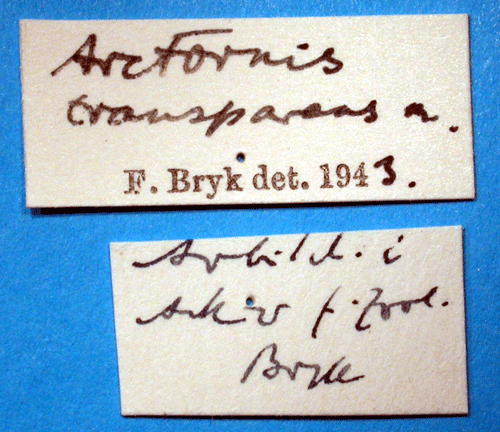 Arctornis
transparens n.
F. Bryk det. 1943.
Avbild. i
Arkiv f. Zool.
Bryk